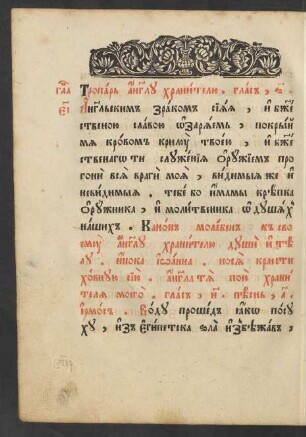 Тропа́рь а҆́гг҃лꙋ храни́телю, гла́съ, ѕ҃.
А҆́гг҃льскимъ зра́комъ сїѧ́ѧ, и҆ бж҃е
ственою сла́вою ѡ҆зарѧ́емь, покры́й
мѧ кро́вомъ крилꙋ̀ твоє́ю, и҆ бж҃е
ственагѡ ти слꙋже́нїѧ ѻ҆рꙋ́жїемъ про
гони́ всѧ̀ врагѝ моѧ̀, ви́димыѧ же и҆
неви́димыѧ. тебє́ бо и҆́мамы крѣ́пка
ѻ҆рꙋ́жника, и҆ моли́твеника ѡ҆ дꙋша́хъ
на́шихъ. Кано́нъ моле́бенъ къ сво
емꙋ̀ а҆́гг҃лꙋ храни́телю дꙋшѝ и҆ тѣ́
лꙋ. и҆́нока і҆ѡа́нна.
хо́внꙋю сїю̀. а҆́гг҃ла тѧ пою̀ храни́
телѧ моего̀. гла́съ, и҃. пѣ́снь, а҃.
і҆рмо́съ. Во́дꙋ проше́дъ ꙗ҆́кѡ по сꙋ́
хꙋ, и҆ и҆з̾ є҆гѵ́петска ѕла̀ и҆збѣжа́въ,